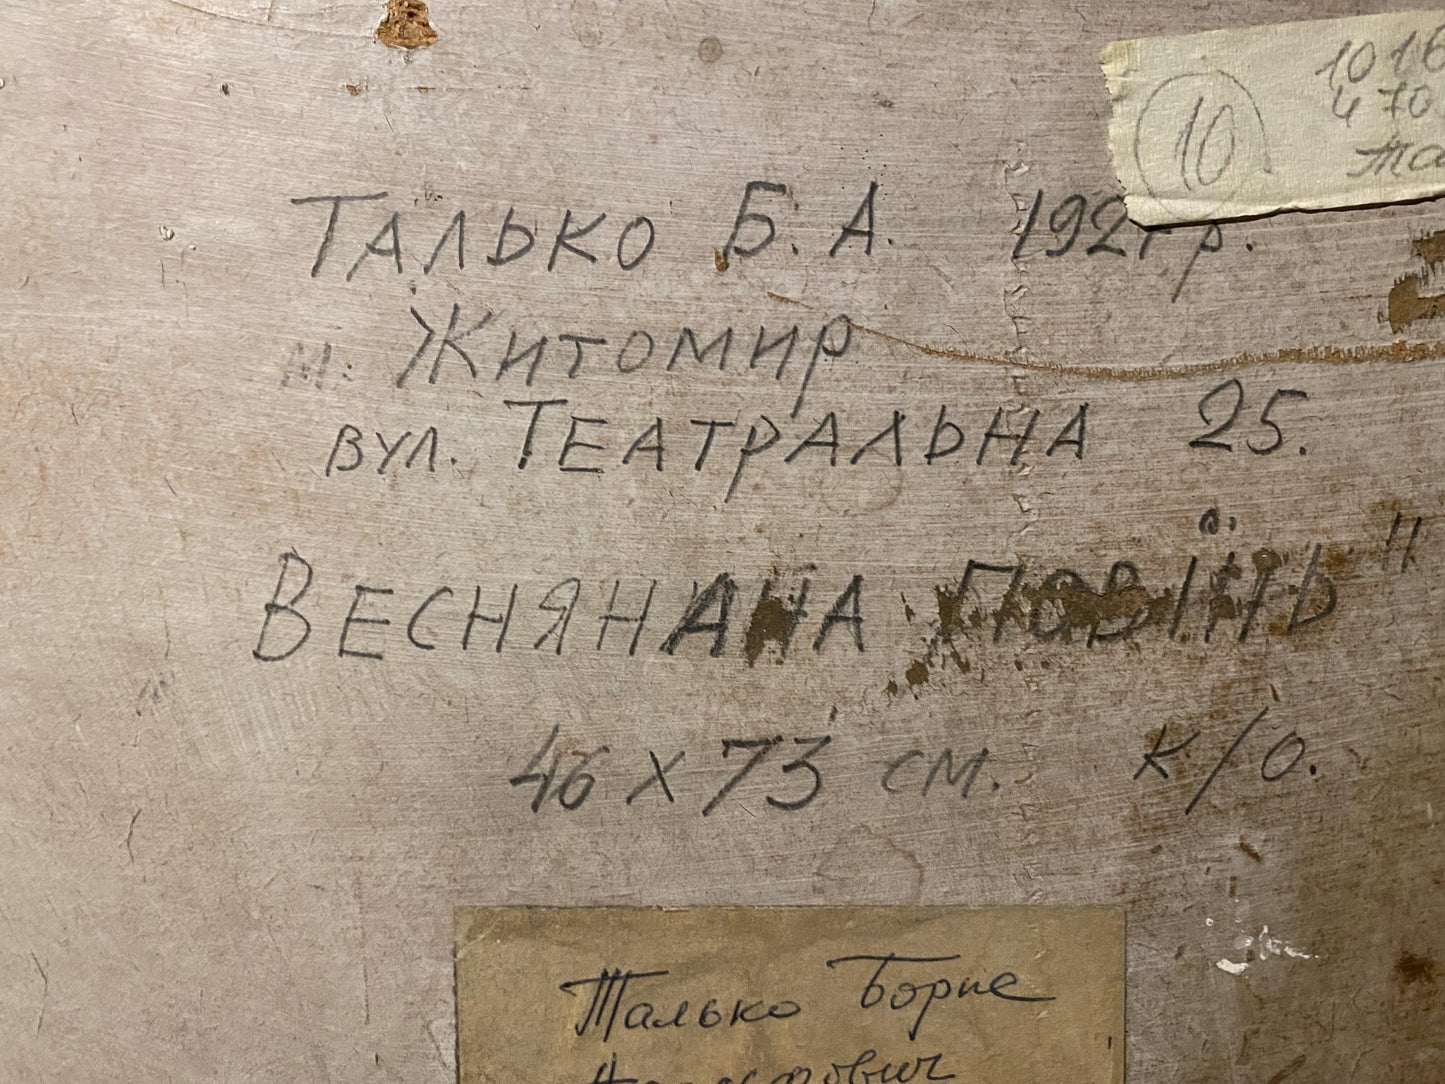 10
1016
470
Талько Б. А. 192 р.
м. Житомир
вул. Театральна 25.
Веснянана повінь"
46 х 73 см. к/о.
Талько Борис